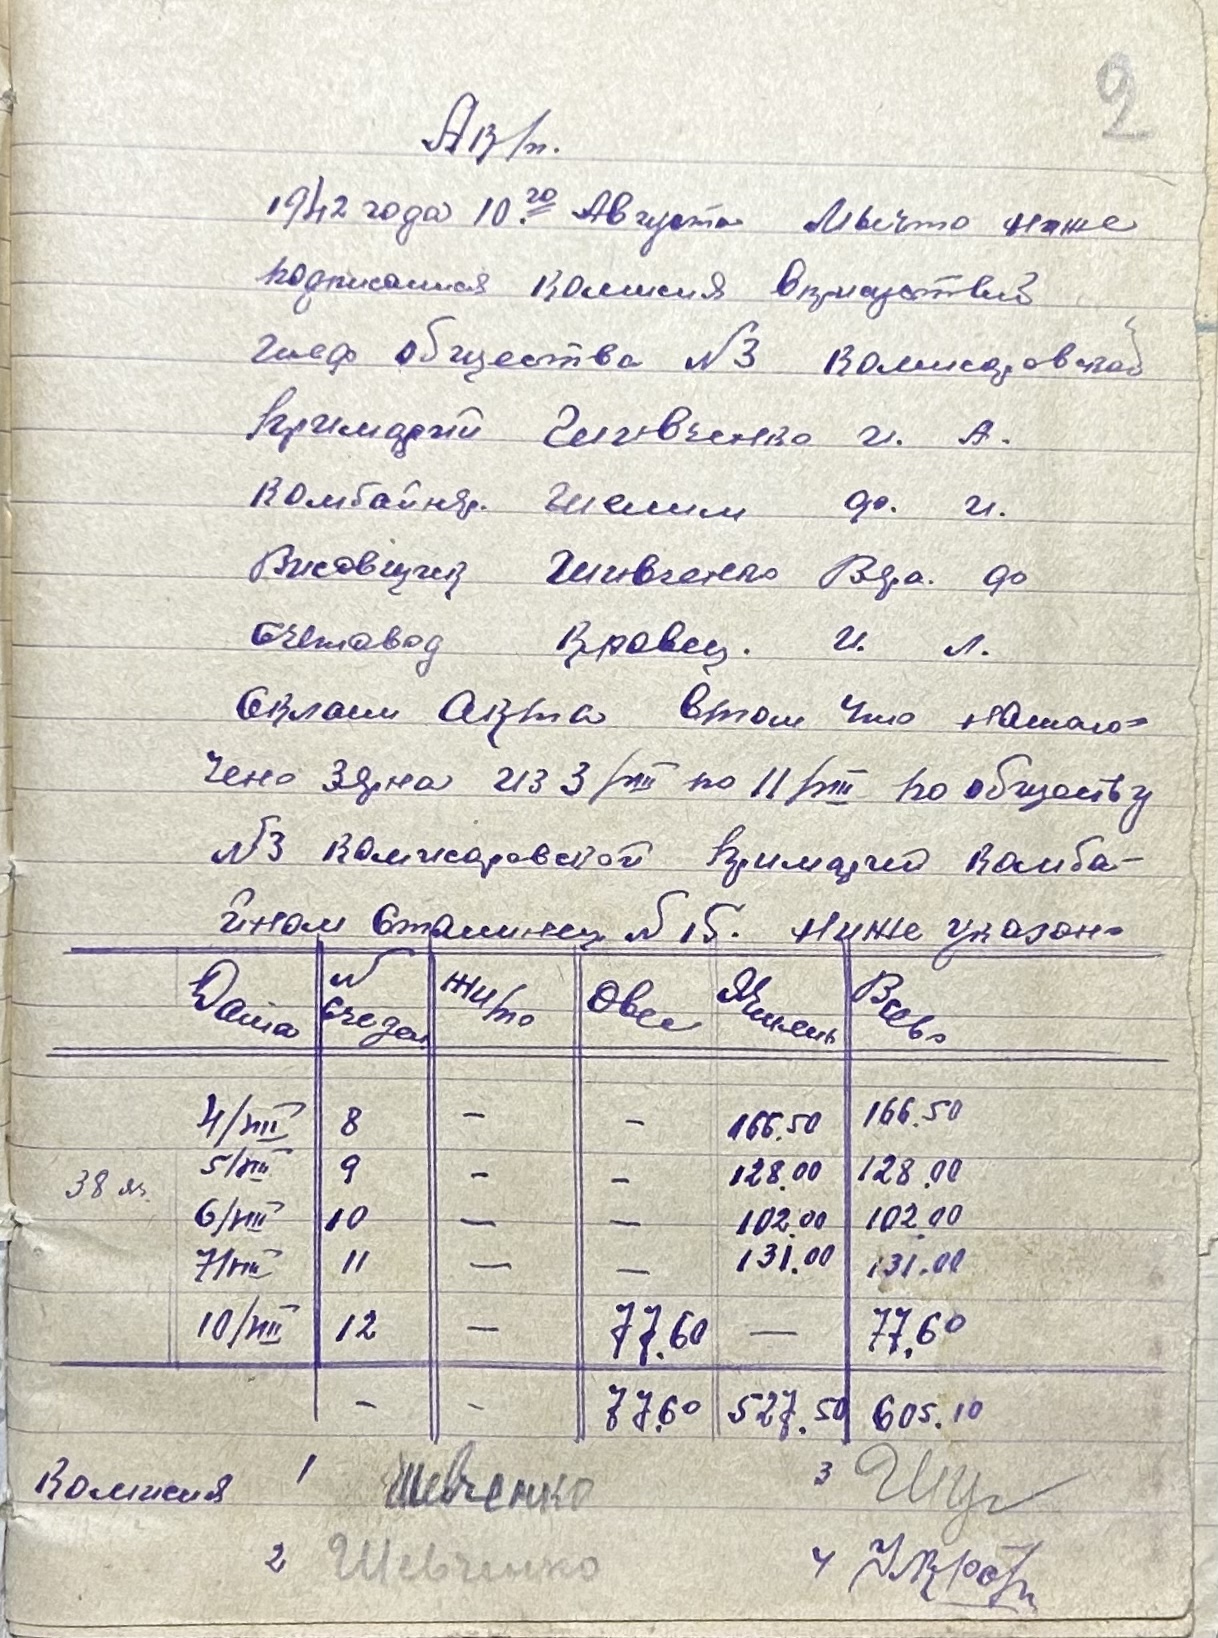 2
Акт.
1942 года 10го Августа Мычто ниже
подписания Комисия вприсуствий
шеф общества №3 Комисаровской
примарий Шивченко И. А.
Комбайнер. Ф. И.
Висовщик Шивченко Вяр. Ф
Счетавод Кравец. И. Л.
Склали Акта втом что намоло=
чено Зерна из 3/VIII по 11/VIII по обществу
№3 Комисаровской примарий Комба-
йном Сталинец №15. ниже указан.
Дата № Счеза Жито Овес Ячмень Всево
4/VIII 8 – – 166.50 166.50
5/VIII 9 – – 128.00 128.00
38 га.
6/VIII 10 – – 102.00 102.00
7/VIII 11 – – 131.00 131.00
10/VIII 12 – 77.60 — 77.60
– – 77.60 527.50 605.10
Комисия 1 Шевченко 3
2 Шевченко 4